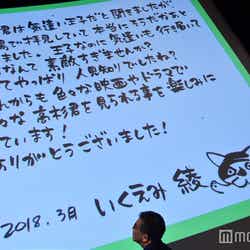 君は気遣い王子だと聞きましたが
見ていて本当にそうだなぁ
ました 王子なのに気遣いも行き届いて
なんて素敵すぎませんか?
てやっぱり人見知りでしたね?
れからも色々な映画やドラマで
な高杉君を見られる事を楽しみに
ています!
ありがとうございました!
2018.3月 いくえみ綾
mo